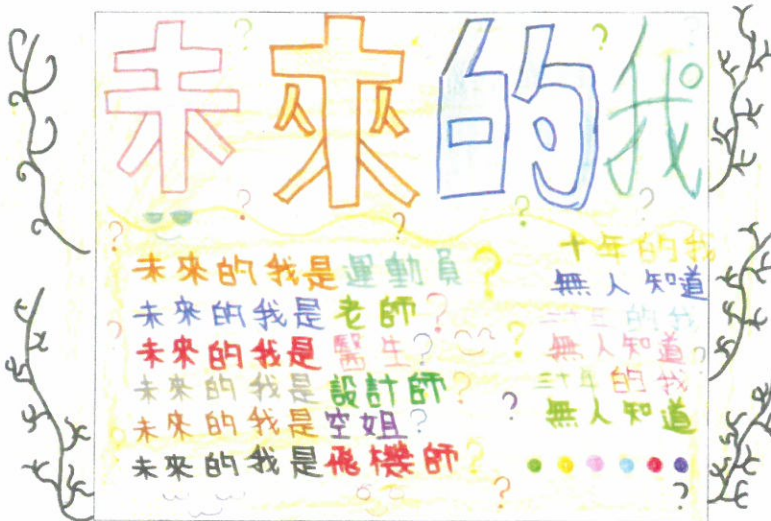 未來的我
未來的我是運動員?
未來的我是老師?
未來的我是醫生?
未來的我是設計師?
未來的我是空姐?
未來的我是飛機師?
十年的我
無人知道
的我
無人知道
三十年的我
無人知道